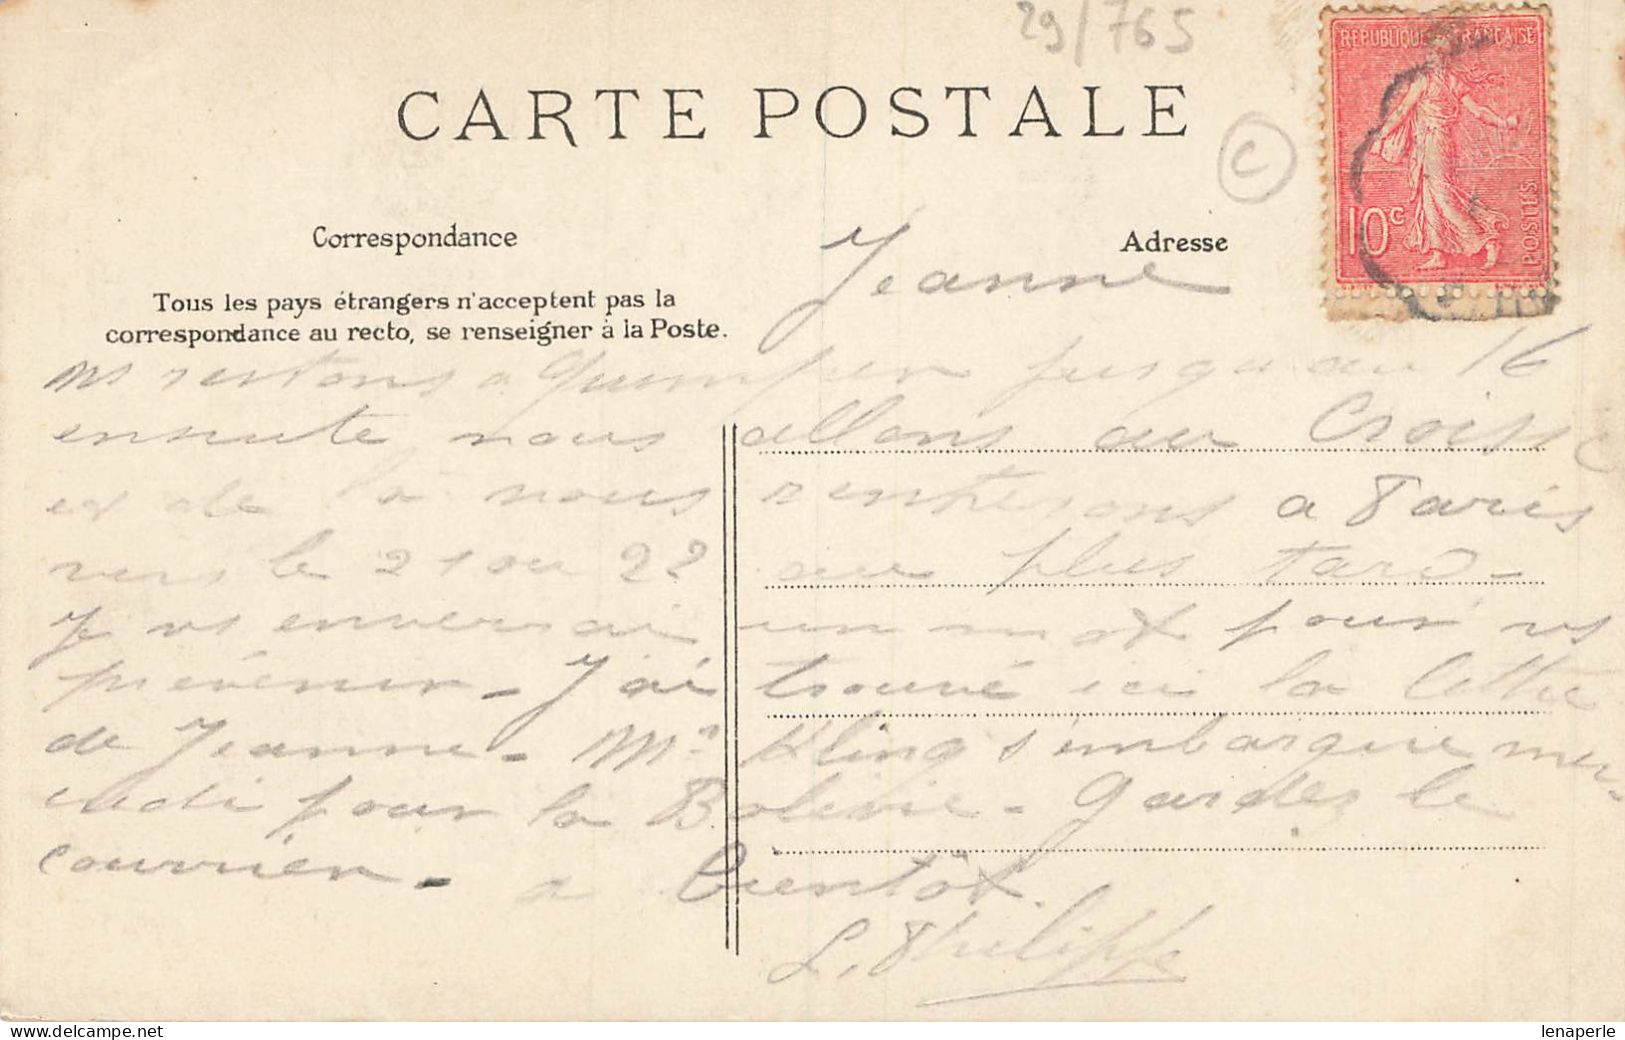 29/765
CARTE POSTALE
C
REPUBLIQUE FRANCAISE
10c
POSTES
Correspondance
Adresse
Tous les pays étrangers n'acceptent pas la
correspondance au recto, se renseigner à la Poste.
Jeanne
ns restons a Quimper jusqu'au 16
ensuite nous allons au Croisic
et de là nous rentrerons a Paris
vers le 21 ou 22 au plus tard -
Je vs enverrai un mot pour vs
prévenir - J'ai trouvé ici la lettre
de Jeanne - Mr Kling s'embarque mer-
credi pour la Bolivie - Gardez le
courrier - a bientôt.
L. Philippe
delcampe.net
lenaperle